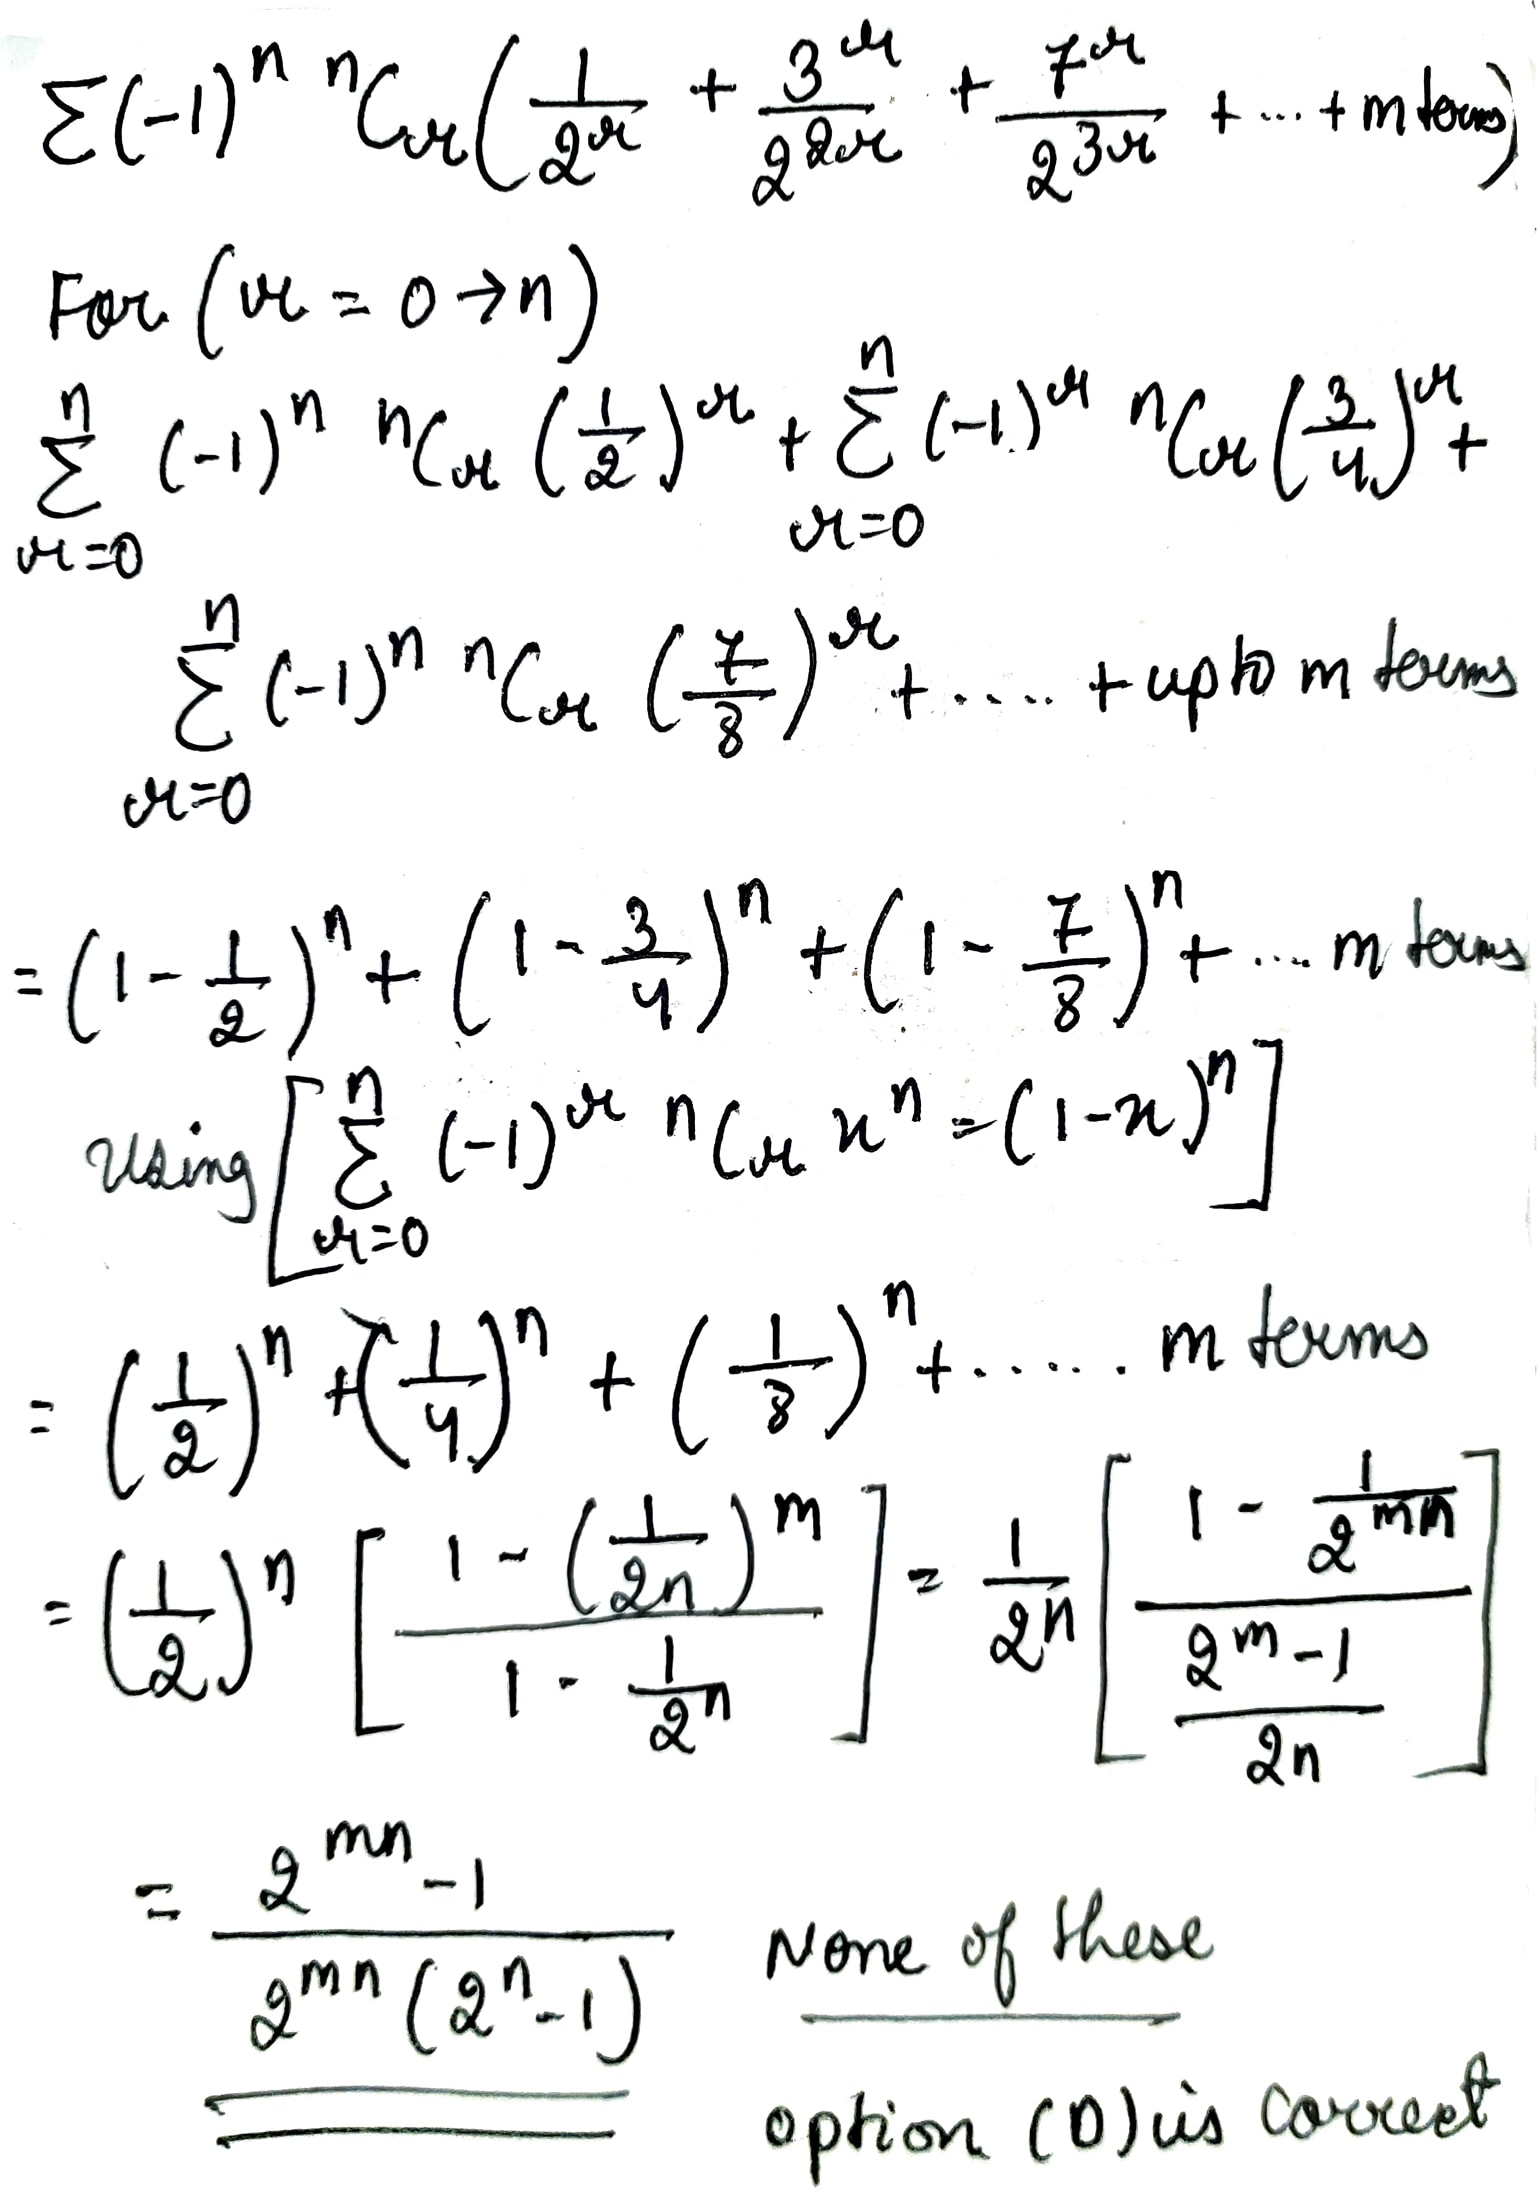 Σ(-1)ⁿ ⁿCᵣ(1/2ʳ + 3ʳ/2²ʳ + 7ʳ/2³ʳ + ... + m terms)
For (r = 0 → n)
Σⁿᵣ₌₀ (-1)ⁿ ⁿCᵣ (1/2)ʳ + Σⁿᵣ₌₀ (-1)ʳ ⁿCᵣ (3/4)ʳ +
Σⁿᵣ₌₀ (-1)ⁿ ⁿCᵣ (7/8)ʳ + ..... + upto m terms
= (1 - 1/2)ⁿ + (1 - 3/4)ⁿ + (1 - 7/8)ⁿ + .... m terms
Using [Σⁿᵣ₌₀ (-1)ʳ ⁿCᵣ xⁿ = (1-x)ⁿ]
= (1/2)ⁿ + (1/4)ⁿ + (1/8)ⁿ + ...... m terms
= (1/2)ⁿ [(1 - (1/2n)ᵐ)/(1 - 1/2ⁿ)] = 1/2ⁿ [(1 - 1/2ᵐⁿ)/((2ᵐ-1)/2n)]
= (2ᵐⁿ - 1)/(2ᵐⁿ(2ⁿ-1)) None of these
option (D) is correct